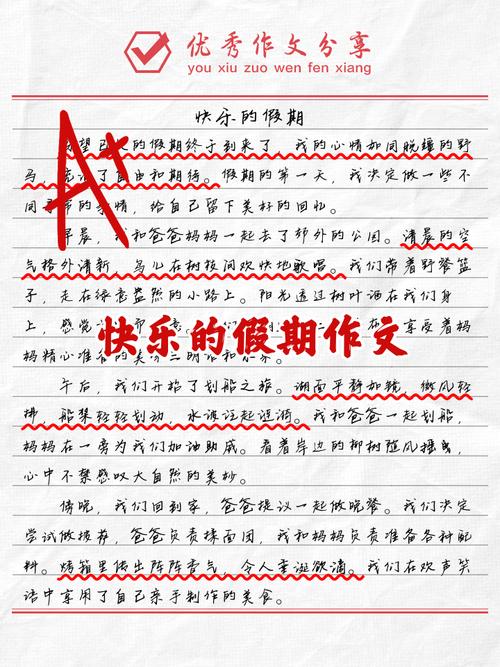 优秀作文分享
you xiu zuo wen fen xiang
快乐的假期
A+
望已的假期终于到来了，我的心情如同脱缰的野
马，了自由和期待。假期的第一天，我决定做一些不
同的事情，给自己留下美好的回忆。
早晨，我和爸爸妈妈一起去了郊外的公园。清晨的空
气格外清新，鸟儿在树枝间欢快地歌唱。我们带着野餐篮
子，走在绿意盎然的小路上。阳光透过树叶洒在我们身
上，感觉而在享受着妈
快乐的假期作文
妈精心准备的美三明治和
午后，我们开始了划船之旅。湖面平静如镜，微风轻
拂，船桨轻轻划动，水波泛起涟漪。我和爸爸一起划船，
妈妈在一旁为我们加油助威。看着岸边的柳树随风摇曳，
心中不禁感叹大自然的美妙。
傍晚，我们回到家，爸爸提议一起做晚餐。我们决定
尝试做披萨，爸爸负责揉面团，我和妈妈负责准备各种配
料。烤箱里传出阵阵香气，令人垂涎欲滴。我们在欢声笑
语中享用了自己亲手制作的美食。